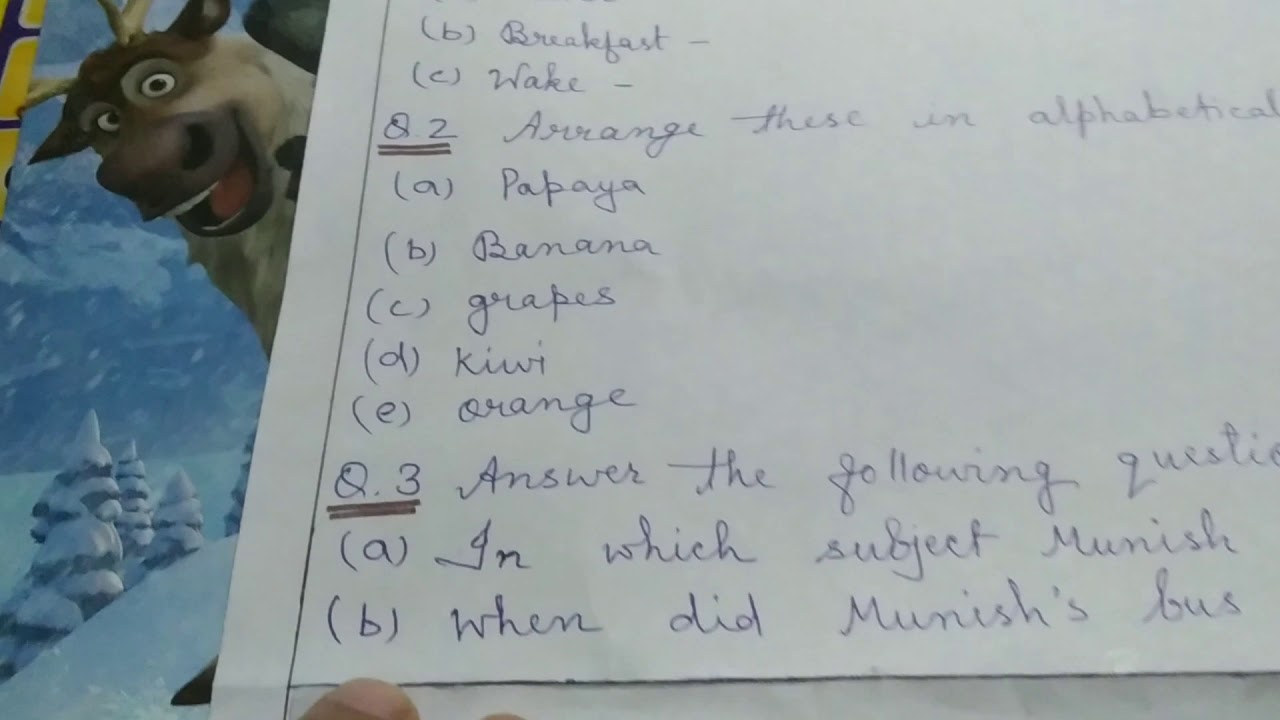 (b) Breakfast -
(c) Wake -
Q.2 Arrange these in alphabetical
(a) Papaya
(b) Banana
(c) grapes
(d) kiwi
(e) orange
Q.3 Answer the following
(a) In which subject Munish
(b) when did Munish's bus